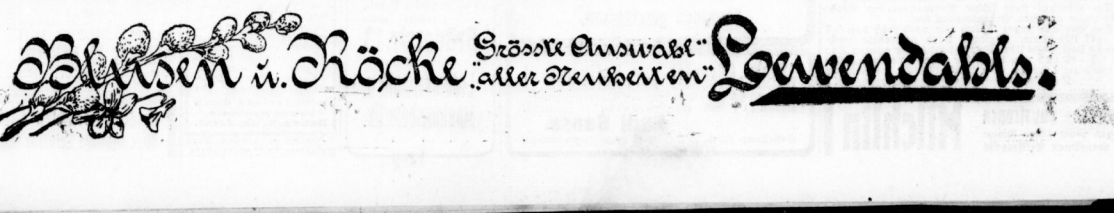 Blusen u. Röcke
Grösste Auswahl
"aller Neuheiten"
Loewendahls.